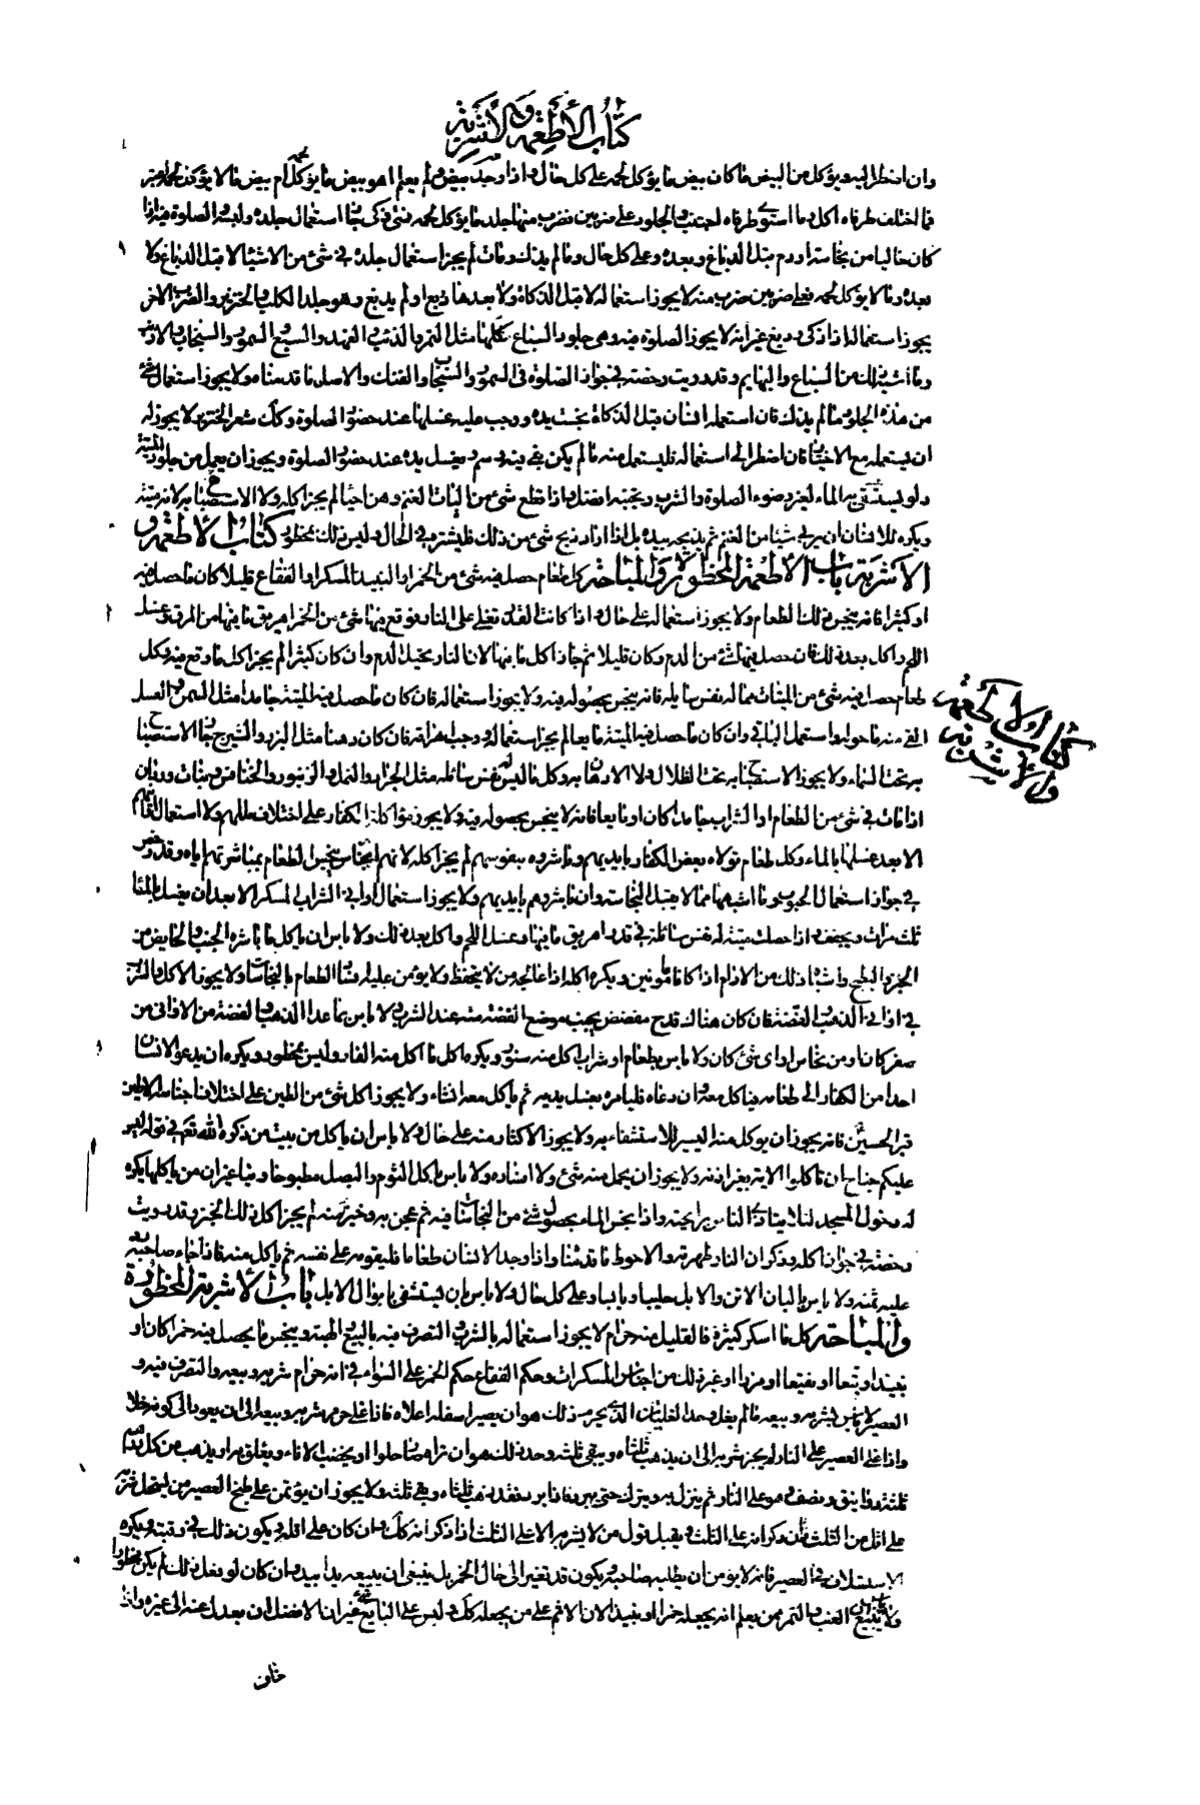 كتاب الأطعمة والأشربة
وان اضطر اليه ويؤكل من البيض ما كان بيض ما يؤكل لحمه على كل حال واذا وجد بيض ولم يعلم اهو بيض ما يؤكل لحمه ام بيض ما لا يؤكل لحمه اعتبر
فما اختلف طرفاه اكل وما استوى طرفاه اجتنب والجلود على ضربين فضرب منها جلد ما يؤكل لحمه فمتى ذكى جاز استعمال جلده ولبسه والصلوة فيه اذا
كان خاليا من نجاسة او دم قبل الدباغ وبعده وعلى كل حال وما لم يذك ومات لم يجز استعمال جلده في شئ من الاشياء لا قبل الدباغ ولا
بعده وما لا يؤكل لحمه فعلى ضربين ضرب منه لا يجوز استعماله لا قبل الذكاة ولا بعدها دبغ او لم يدبغ وهو جلد الكلب والخنزير والضرب الاخر
يجوز استعماله اذا ذكى ودبغ غير انه لا يجوز الصلوة فيه وهى جلود السباع كلها مثل النمر والذئب والفهد والسبع والسمور والسنجاب والارنب
وما اشبه ذلك من السباع والبهايم وقد رويت رخصة في جواز الصلوة فى السمور والسنجاب والفنك والاصل ما قدمناه ولا يجوز استعمال شئ
من هذه الجلود ما لم يذك فان استعمله انسان قبل الذكاة نجست يده ووجب عليه غسلها عند حضور الصلوة وكك شعر الخنزير لا يجوز له
ان يستعمله مع الاختيار فان اضطر الى استعماله فليستعمل منه ما لم يكن بقى فيه دسم ويغسل يده عند حضور الصلوة ويجوز ان يعمل من جلود الميتة
دلو ليستقى به الماء لغير وضوء الصلوة والشرب وتجنبه افضل واذا قطع شئ من اليات الغنم وهن احياء لم يجز اكله ولا الاستصباح به لانه ميتة
ويكره للانسان ان يربى شيئا من الغنم ثم يذبحه بيده بل اذا اراد ذبح شئ من ذلك فليشتره في الحال وليس ذلك بمحظور كتاب الأطعمة و
الاشربة باب الأطعمة المحظورة والمباحة كل طعام حصل فيه شئ من الخمر او النبيذ المسكر او الفقاع قليلا كان ما حصل فيه
او كثيرا فانه ينجس ذلك الطعام ولا يجوز استعماله على حال واذا كانت القدر تغلى على النار فوقع فيها شئ من الخمر اهريق ما فيها من المرق وغسل
اللحم واكل بعد ذلك فان حصل فيها شئ من الدم وكان قليلا ثم جاز اكل ما فيها لان النار تحيل الدم وان كان كثيرا لم يجز اكل ما وقع فيه وكل
طعام حصل فيه شئ من الميتات مما له نفس سايلة فانه ينجس بحصوله فيه ولا يجوز استعماله فان كان ما حصل فيه الميتة جامدا مثل السمن والعسل
القى منه ما حوله واستعمل الباقى وان كان ما حصل فيه الميتة مايعا لم يجز استعماله ووجب هراقه فان كان دهنا مثل البزر والشيرج جاز الاستصباح
به تحت السماء ولا يجوز الاستصباح به تحت الظلال ولا الادهان به وكل ما ليس له نفس سائلة مثل الجراد والنمل والزنبور والخنافس وبنات وردان
اذا مات في شئ من الطعام او الشراب جامدا كان او مايعا فانه لا ينجس بحصوله فيه ولا يجوز مؤاكلة الكفار على اختلاف مللهم ولا استعمال اوانيهم
الا بعد غسلها بالماء وكل طعام تولاه بعض الكفار بايديهم وباشروه بنفوسهم لم يجز اكله لانهم انجاس ينجس الطعام بمباشرتهم اياه وقد رخص
في جواز استعمال الحبوب وما اشبهها مما لا يقبل النجاسة وان باشروهم بايديهم ولا يجوز استعمال اوانى الشراب المسكر الا بعد ان يغسل بالماء
ثلث مرات ويجفف واذا حصلت ميتة لها نفس سائلة في قدر اهريق ما فيها وغسل اللحم واكل بعد ذلك ولا باس ان ياكل ما باشره الجنب والحايض من
الخبز والطبخ واشباه ذلك من الادام اذا كانا مأمونين ويكره اكله اذا عالجه من لا يتحفظ ولا يؤمن عليه افساد الطعام بالنجاسات ولا يجوز الاكل والشرب
في اوانى الذهب والفضة فان كان هناك قدح مفضض يجتنب موضع الفضة منه عند الشرب ولا باس بما عدا الذهب والفضة من الاوانى من
صفر كان او من نحاس او اى شئ كان ولا باس بطعام او شراب اكل منه سنور ويكره اكل ما اكل منه الفار وليس بمحظور ويكره ان يدعو الانسان
احدا من الكفار الى طعامه فياكل معه وان دعاه فليامره بغسل يديه ثم ياكل معه ان شاء ولا يجوز اكل شئ من الطين على اختلاف اجناسه الا طين
قبر الحسين فانه يجوز ان يوكل منه اليسير للاستشفاء به ولا يجوز الاكثار منه على حال ولا باس ان ياكل من بيت من ذكره الله تعالى في قوله ليس
عليكم جناح ان تاكلوا الاية بغير اذنه ولا يجوز ان يحمل منه شئ ولا افساده ولا باس باكل الثوم والبصل مطبوخا ونيا غير ان من ياكلها يكره
له دخول المسجد لئلا يتاذى الناس برايحته واذا نجس الماء بحصول شئ من النجاسات فيه ثم عجن به وخبز منه لم يجز اكل ذلك الخبز وقد رويت
رخصة في جواز اكله وذكر ان النار طهرته والاحوط ما قدمناه واذا وجد الانسان طعاما فليقومه على نفسه ثم ياكل منه فاذا جاء صاحبه رد
عليه ثمنه ولا باس بالبان الاتن والابل حليبا ويابسا وعلى كل حال ولا باس بان يستشفى بابوال الابل باب الأشربة المحظورة
والمباحة كل ما اسكر كثيره فالقليل منه حرام لا يجوز استعماله بالشرب والتصرف فيه بالبيع والهبة وينجس ما يحصل فيه خمرا كان او
نبيذا او بتعا او نقيعا او مزرا او غير ذلك من اجناس المسكرات وحكم الفقاع حكم الخمر على السواء في انه حرام شربه وبيعه والتصرف فيه و
العصير لا باس بشربه وبيعه ما لم يغل وحد الغليان الذى يحرم ذلك هو ان يصير اسفله اعلاه فاذا غلى حرم شربه وبيعه الى ان يعود الى كونه خلا
واذا غلى العصير على النار لم يجز شربه الى ان يذهب ثلثاه ويبقى ثلثه وحد ذلك هو ان تراه صار حلوا او يخضب الاناء ويعلق به او يذهب من كل درهم
ثلثة دوانيق ونصف وهو على النار ثم ينزل به ويترك حتى يبرد فاذا برد فقد ذهب ثلثاه وبقى ثلثه ولا يجوز ان يؤتمن على طبخ العصير من يستحل شربه
على اقل من الثلث وان ذكر انه على الثلث ويقبل قول من لا يشربه الا على الثلث اذا ذكر انه كك وان كان على اقله ويكون ذلك في رقبته ويكره
الاستسلاف في العصير فانه لا يؤمن ان يطلبه صاحبه ويكون قد تغير الى حال الخمر بل ينبغى ان يبيعه يدا بيد وان كان لو فعل ذلك لم يكن محظورا
ولا باس ببيع العنب والتمر ممن يعلم انه يجعله خمرا او نبيذا لان الاثم على من يجعله كك وليس على البايع شئ غير ان الافضل ان يعدل عنه الى غيره واذا
كتاب الاطعمة
والأشربة
خان